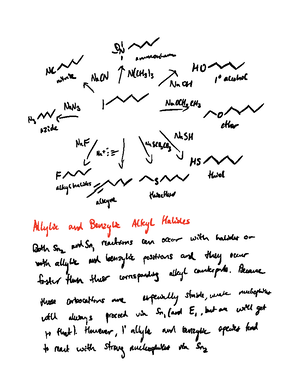 N
ammonium
NC
nitrile
NaCN
N(CH3)3
HO
1° alcohol
NaOH
N3
azide
NaN3
I
NaOCH2CH3
O
ether
NaF
Na+
NaSCH2CH3
NaSH
F
alkyl halides
alkyne
S
thioether
HS
thiol
Allylic and Benzylic Alkyl Halides
Both SN2 and SN1 reactions can occur with halides in
with allylic and benzylic positions and they occur
faster than their corresponding alkyl counterparts. Because
these carbocations are especially stable, weak nucleophiles
will always proceed via SN1 (and E1, but we will get
to that). However, 1° allylic and benzylic species tend
to react with strong nucleophiles via SN2